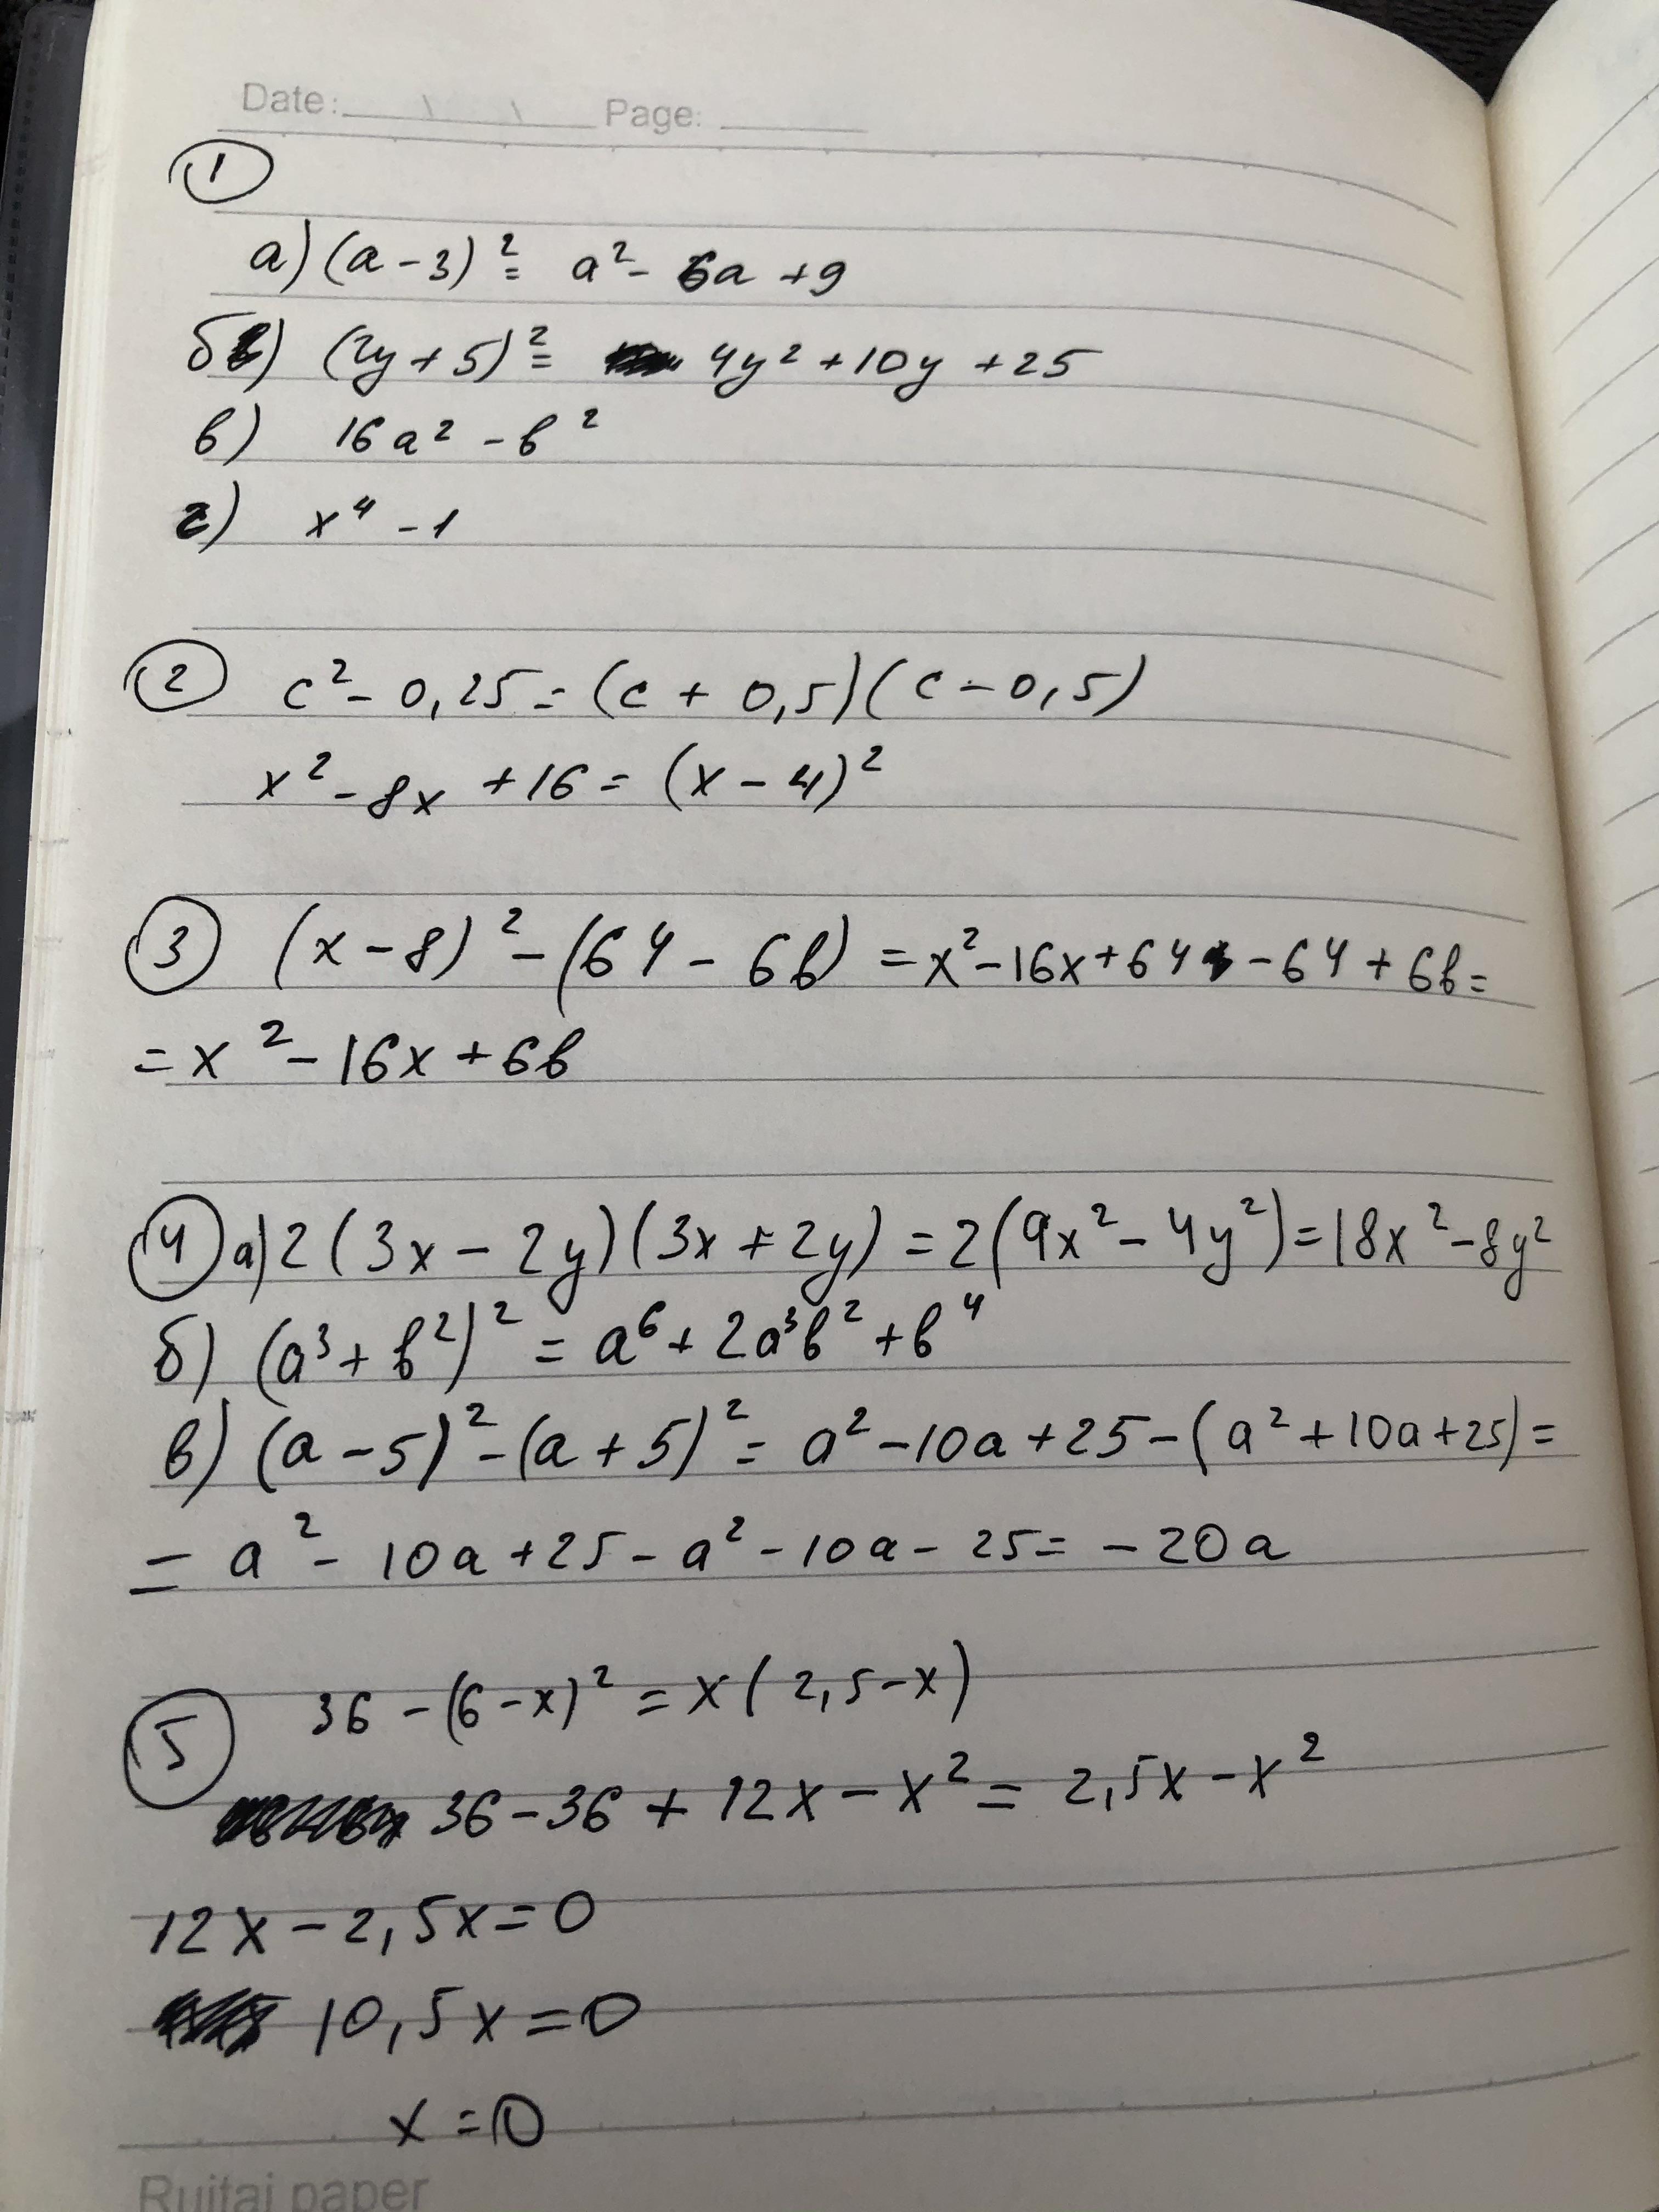 Date: \ \ Page:
1
а) (a-3)² = a² - 6a + 9
б) (2y+5)² = 4y² + 10y + 25
в) 16a² - b²
г) x⁴ - 1
2 c² - 0,25 = (c + 0,5)(c - 0,5)
x² - 8x + 16 = (x - 4)²
3 (x - 8)² - (64 - 6b) = x² - 16x + 64 - 64 + 6b =
= x² - 16x + 6b
4 а) 2(3x - 2y)(3x + 2y) = 2(9x² - 4y²) = 18x² - 8y²
б) (a³ + b²)² = a⁶ + 2a³b² + b⁴
в) (a - 5)² - (a + 5)² = a² - 10a + 25 - (a² + 10a + 25) =
= a² - 10a + 25 - a² - 10a - 25 = -20a
5 36 - (6 - x)² = x(2,5 - x)
36 - 36 + 12x - x² = 2,5x - x²
12x - 2,5x = 0
10,5x = 0
x = 0
Ruitai paper